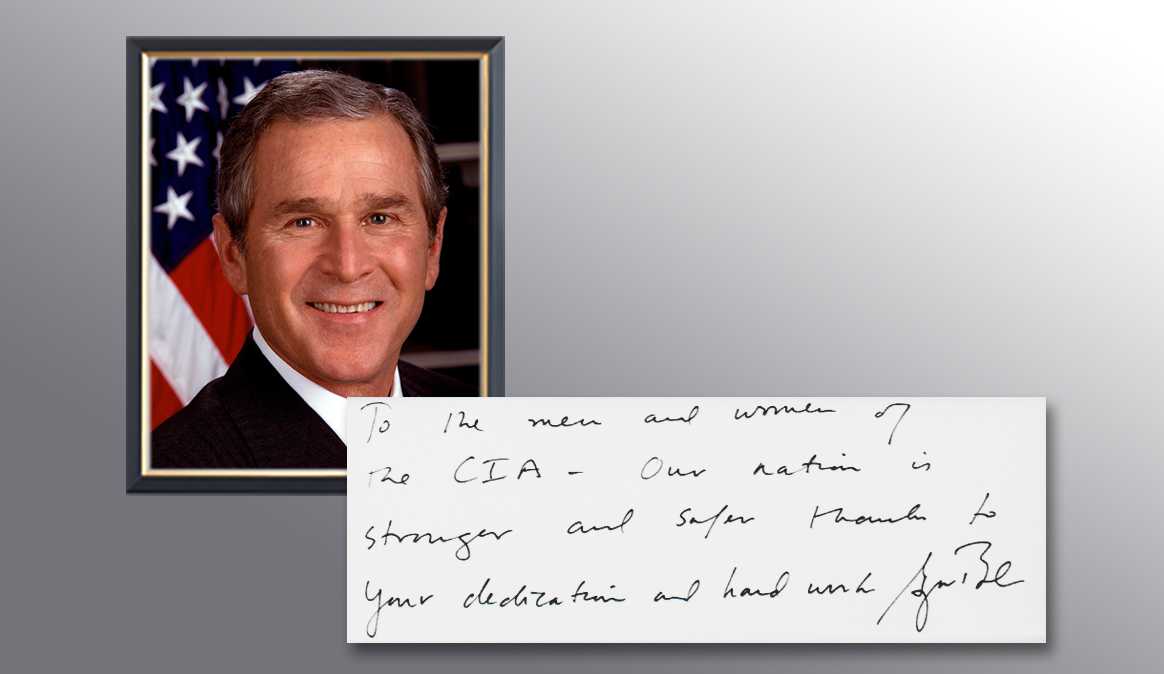 To the men and women of
the CIA - Our nation is
stronger and safer thanks to
your dedication and hard work